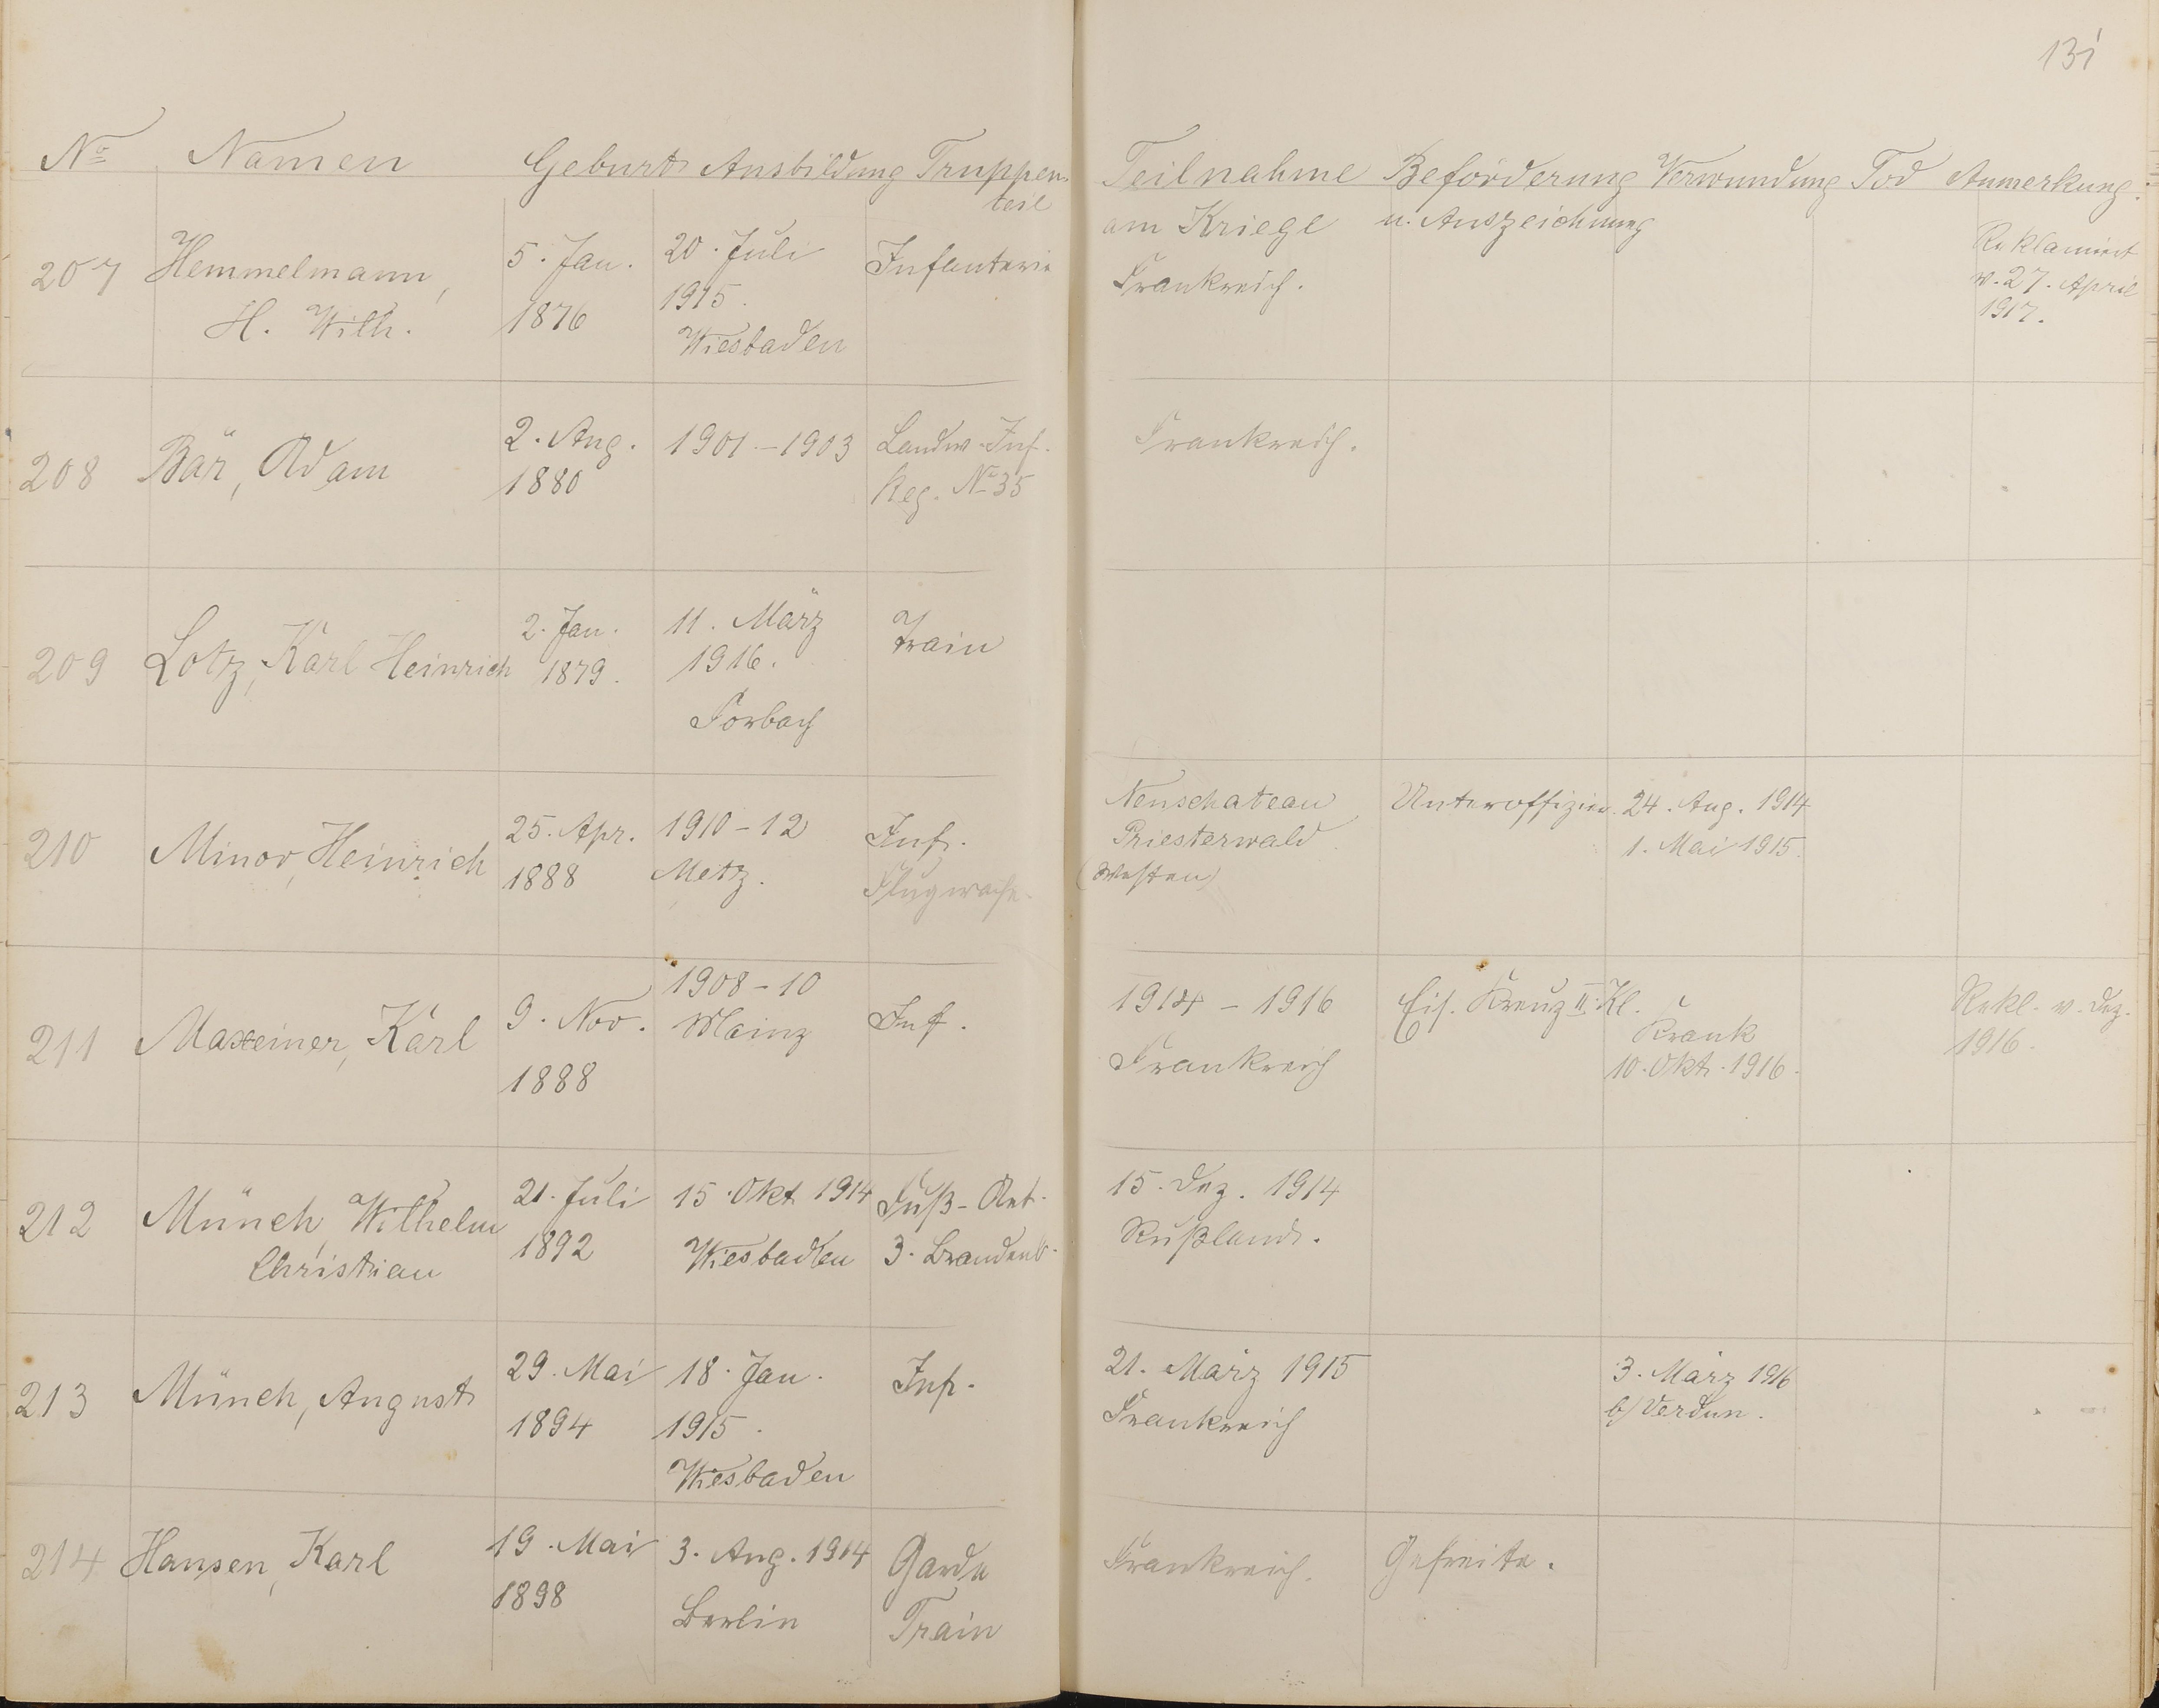 131
No Namen Geburts Ausbildung Truppen- Teilnahme Beförderung Verwundung Tod Anmerkung.
teil am Kriege u. Auszeichnung
207 Hemmelmann, 5. Jan. 20. Juli Infanterie Frankreich. Reklamiert
H. Wilh. 1876 1915. v. 27. April
Wiesbaden 1917.
208 Bär, Adam 2. Aug. 1901-1903 Landw-Inf. Frankreich.
1880 Reg. No 35
209 Lotz, Karl Heinrich 2. Jan. 11. März Train
1879. 1916.
Forbach
210 Minor, Heinrich 25. Apr. 1910-12 Inf. Neuschateau Unteroffizier. 24. Aug. 1914
1888 Metz. Flugwache. Priesterwald 1. Mai 1915.
(Westen)
211 Maxeiner, Karl 9. Nov. 1908-10 Inf. 1914-1916 Eis. Kreuz II. Kl. Krank Rekl. v. Dez.
1888 Mainz Frankreich 10. Okt. 1916. 1916.
212 Münch, Wilhelm 21. Juli 15. Okt 1914 Fuß-Art. 15. Dez. 1914
Christian 1892 Wiesbaden 3. Brandenb. Rußland.
213 Münch, August 29. Mai 18. Jan. Inf. 21. März 1915 3. März 1916
1894 1915. Frankreich b/ Verdun.
Wiesbaden
214 Hansen, Karl 19. Mai 3. Aug. 1914 Garde Frankreich. Gefreite.
1898 Berlin Train